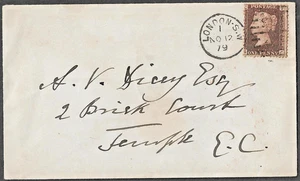 LONDON·S.W
1
NO 12
79
POSTAGE
ONE PENNY
A. V. Dicey Esq
2 Brick Court
Temple
E.C.